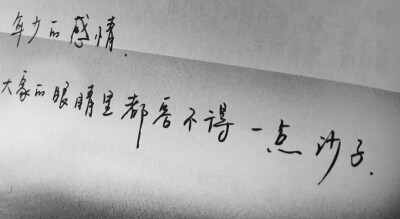 年少的感情.
大家的眼睛里都容不得一点沙子.